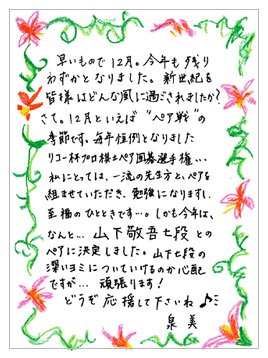 早いもので12月。今年も残り
わずかとなりました。新世紀を
皆様はどんな風に過ごされましたか?
さて。12月といえば“ペア戦”の
季節です。毎年恒例となりました
リコー杯プロ棋士ペア囲碁選手権...
私にとっては、一流の先生方と、ペアを
組ませていただき、勉強になりますし、
至福のひとときです…。しかも今年は、
なんと... 山下敬吾七段との
ペアに決定しました。山下七段の
深いヨミについていけるのか心配
ですが... 頑張ります!
どうぞ応援して下さいね♪
泉美